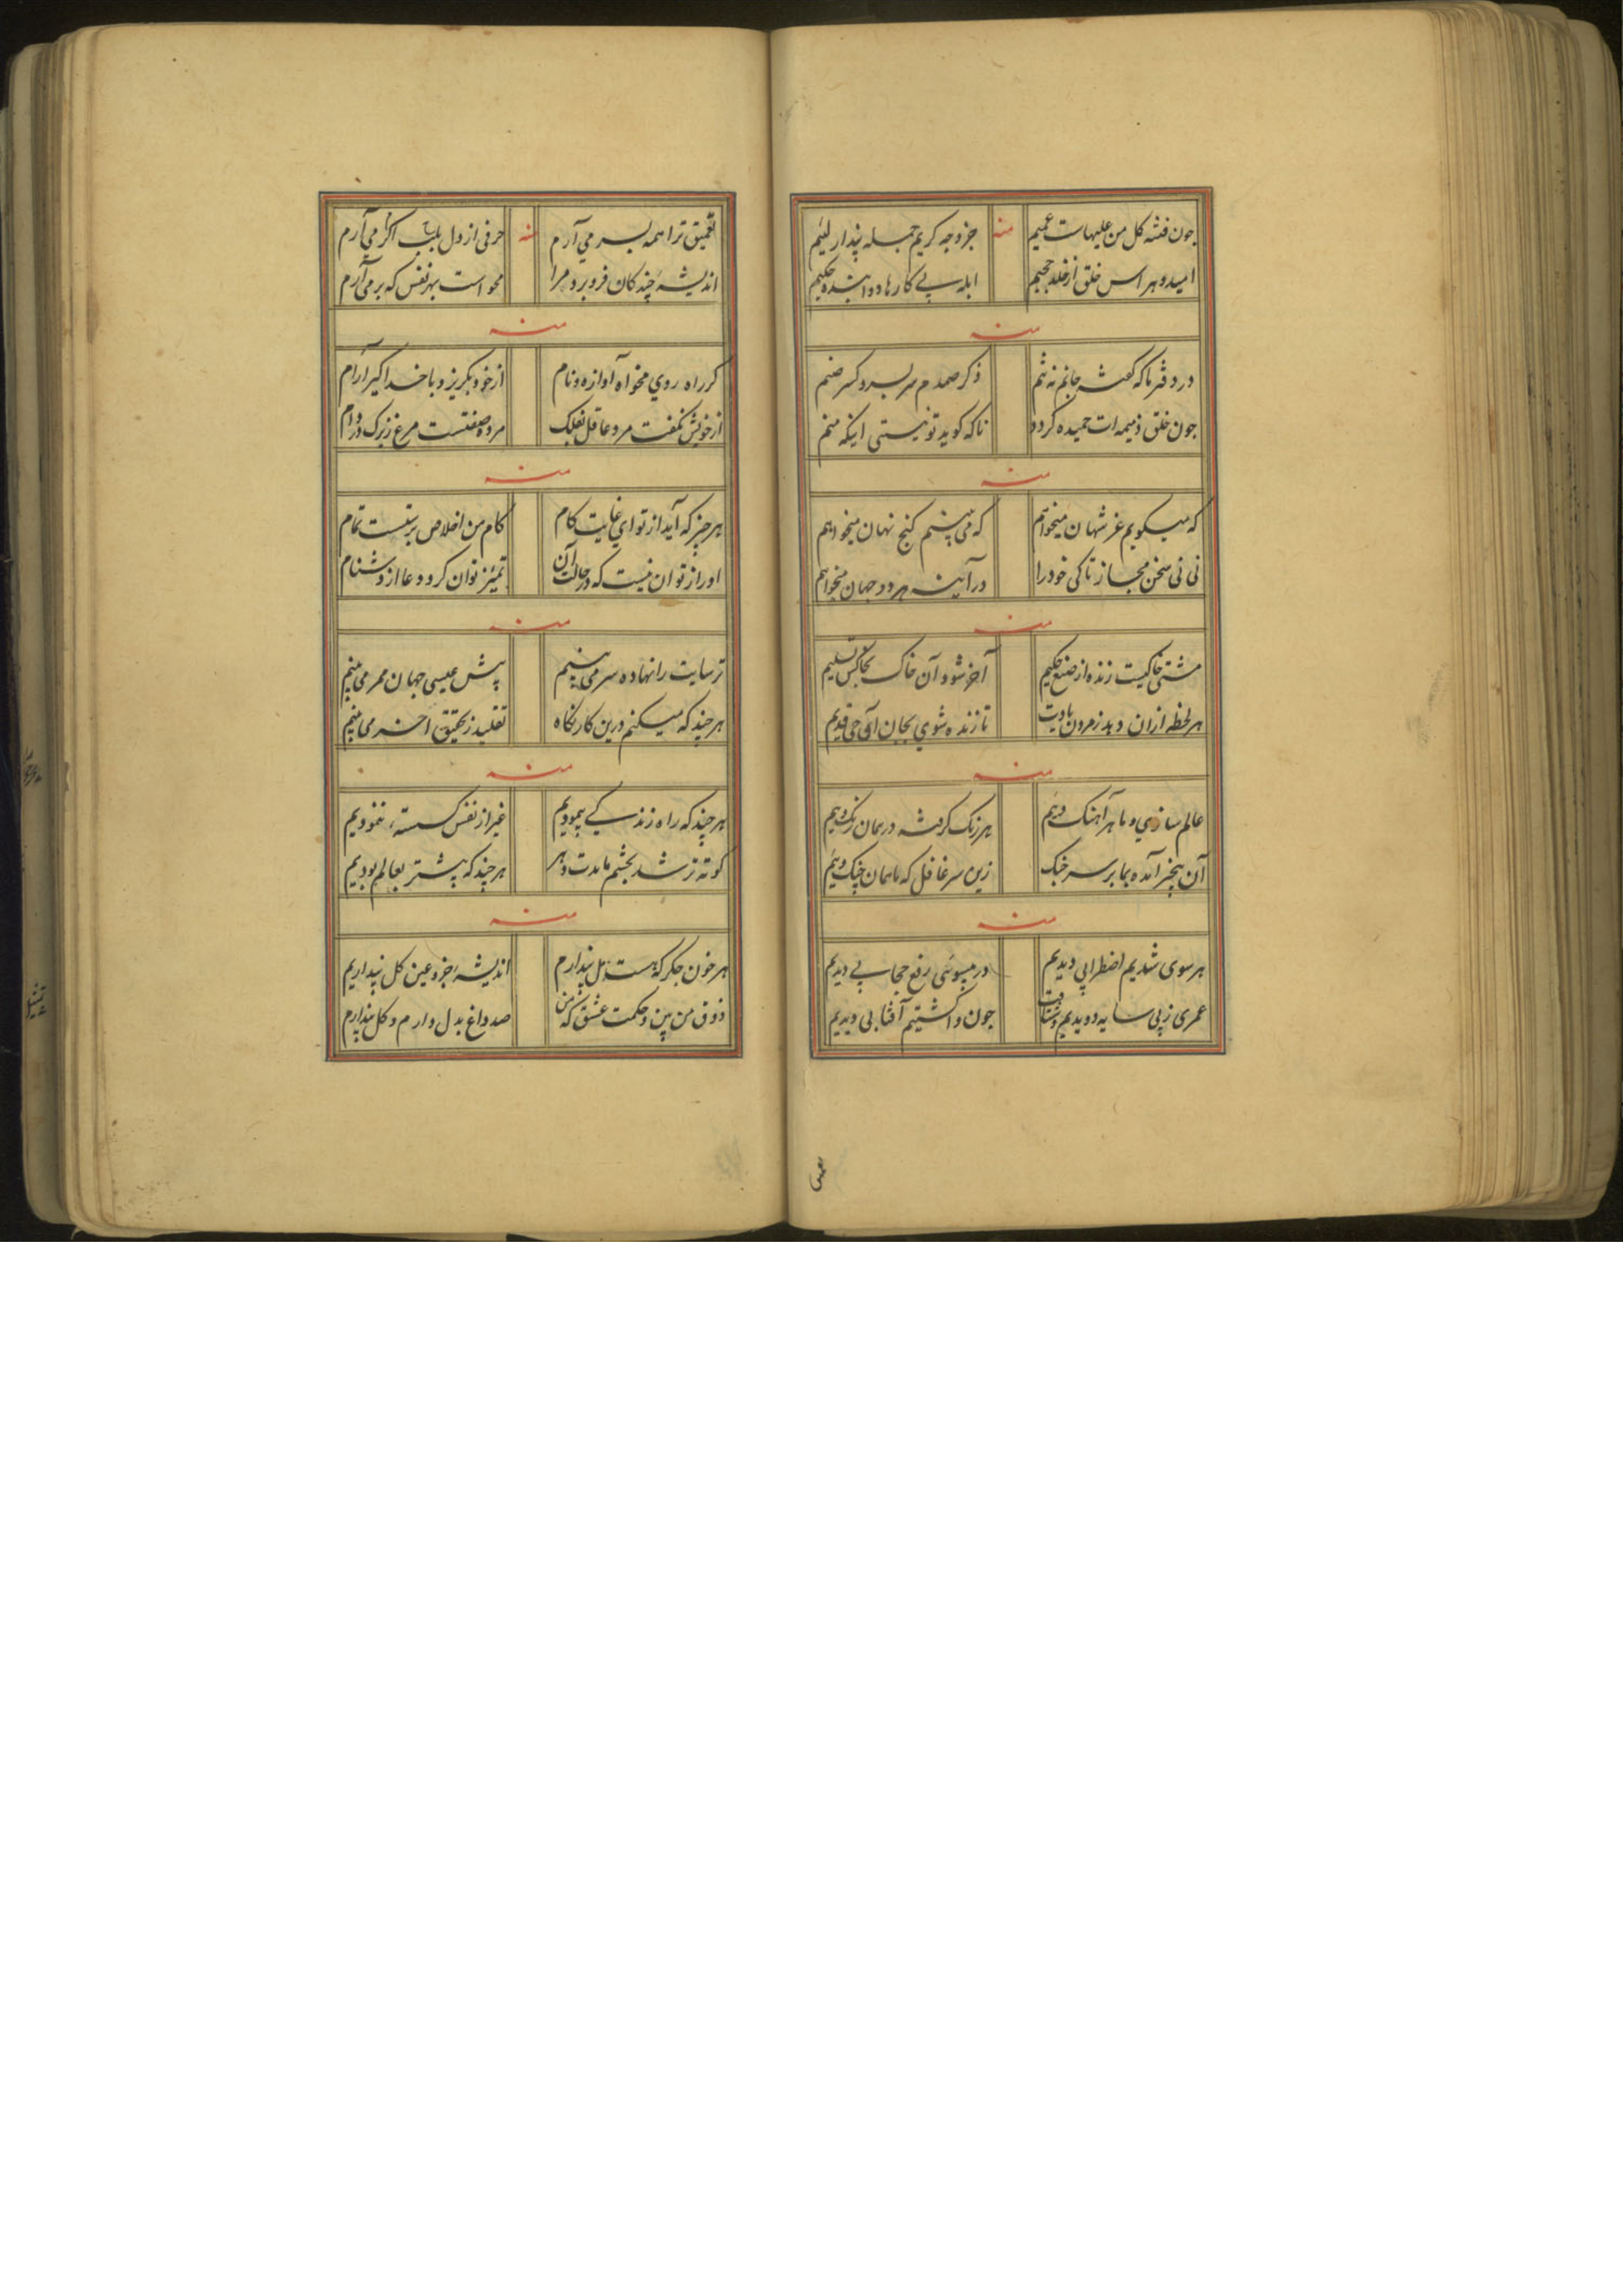 چون فتنه کل من علیهاست عمیم منه جز وجه کریم جمله پندار لئیم
امید و هراس خلق از خلد و جحیم ابله پی کارها دواننده حکیم
منه
در دفتر ما که گفت جانم نه تنم ذکر صمدم هر بسر و کسر صنم
چون خلق ذمیمه ات حمیده گردد ناکه کوید تو نیستی اینکه منم
منه
که میکویم غر شهان میخواهم که می بینم کنج نهان میخواهم
نی نی سخن مجاز تا کی خود را در آینه هر دو جهان میخواهم
منه
مشتی خاکیست زنده از صنع حکیم آخر شود آن خاک بخاکش تسلیم
هر لحظه ازان دهد ز مردن یادت تا زنده شوی بجان آن حی قدیم
منه
عالم سازی و ما هر آهنک ویٔیم هر رنک کرفته در همان رنک ویٔیم
آن بیخبر آمده بما بر سر جنک زین سر غافل که ما همان جنک ویٔیم
منه
هر سوی شدیم اضطرابی دیدیم در بیسوئی رفع حجابی دیدیم
عمری ز پی سایه دویدیم و شتافت چون واکشتیم آفتابی دیدیم
تعمیق ترا همه بسر می آرم منه حرفی از دل بلب اکر می آرم
اندیشه چند کان فرو برد مرا محو است بهر نفس که بر می آرم
منه
کر راه روی مخواه آوازه و نام از خود بکریز و با خدا کیر آرام
از خویش نکفت مرد عاقل بفلک مرده صفتست مرغ زیرک در دام
منه
هر چیز که آید از تو ای غایت کام کام من اخلاص پرستست تمام
اور از توان نیست که در حالت آن تمییز توان کرد دعا از دشنام
منه
ترسایت را نهاده سر می بینم پیش عیسی جهان ممر می بینم
هر چند که میکنم درین کار نکاه تقلید ز تحقیق احسن می بینم
منه
هر چند که راه زندکی پیمودیم غیر از نفس کسسته ننمودیم
کوته تر شد بچشم ما مدت دهر هر چند که پیشتر بعالم بودیم
منه
هر خون جکر که هست مل پندارم اندیشهٔ جزو عین کل پنداریم
ذوق من بین و حکمت عشق که من صد داغ بدل دارم و کل پندارم